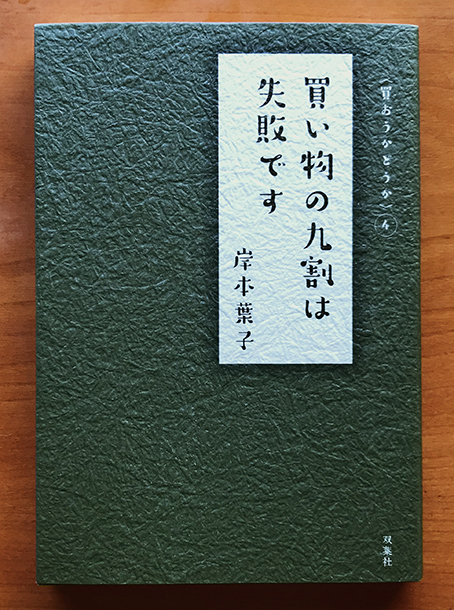 〈買おうかどうか〉4
買い物の九割は
失敗です
岸本葉子
双葉社